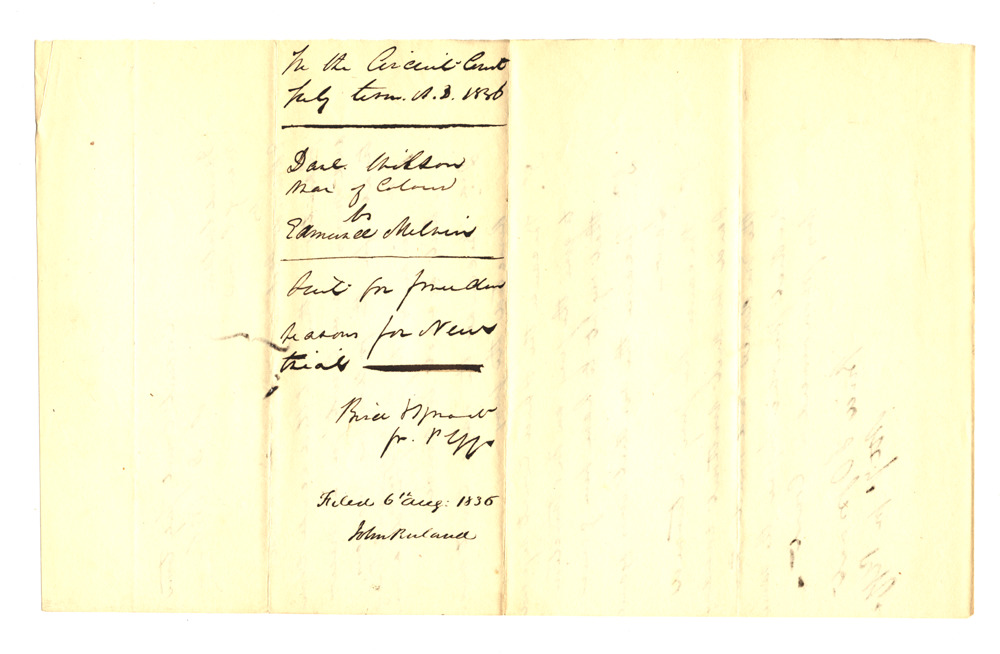 In the Circuit Court
July term. A.D. 1836
Danl. Wilson
Man of Colour
vs
Edmund Melvin
Suit for freedom
reasons for New
trial
Bird & Sproat
for Plffs
Filed 6th Aug: 1836
John Ruland